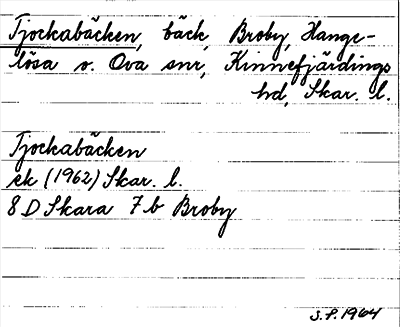 Tjockabäcken, bäck, Broby, Hange-
lösa o. Ova snr, Kinnefjärdings
hd, Skar. l.
Tjockabäcken
ek (1962) Skar. l.
8 D Skara 7 b Broby
S.F. 1964